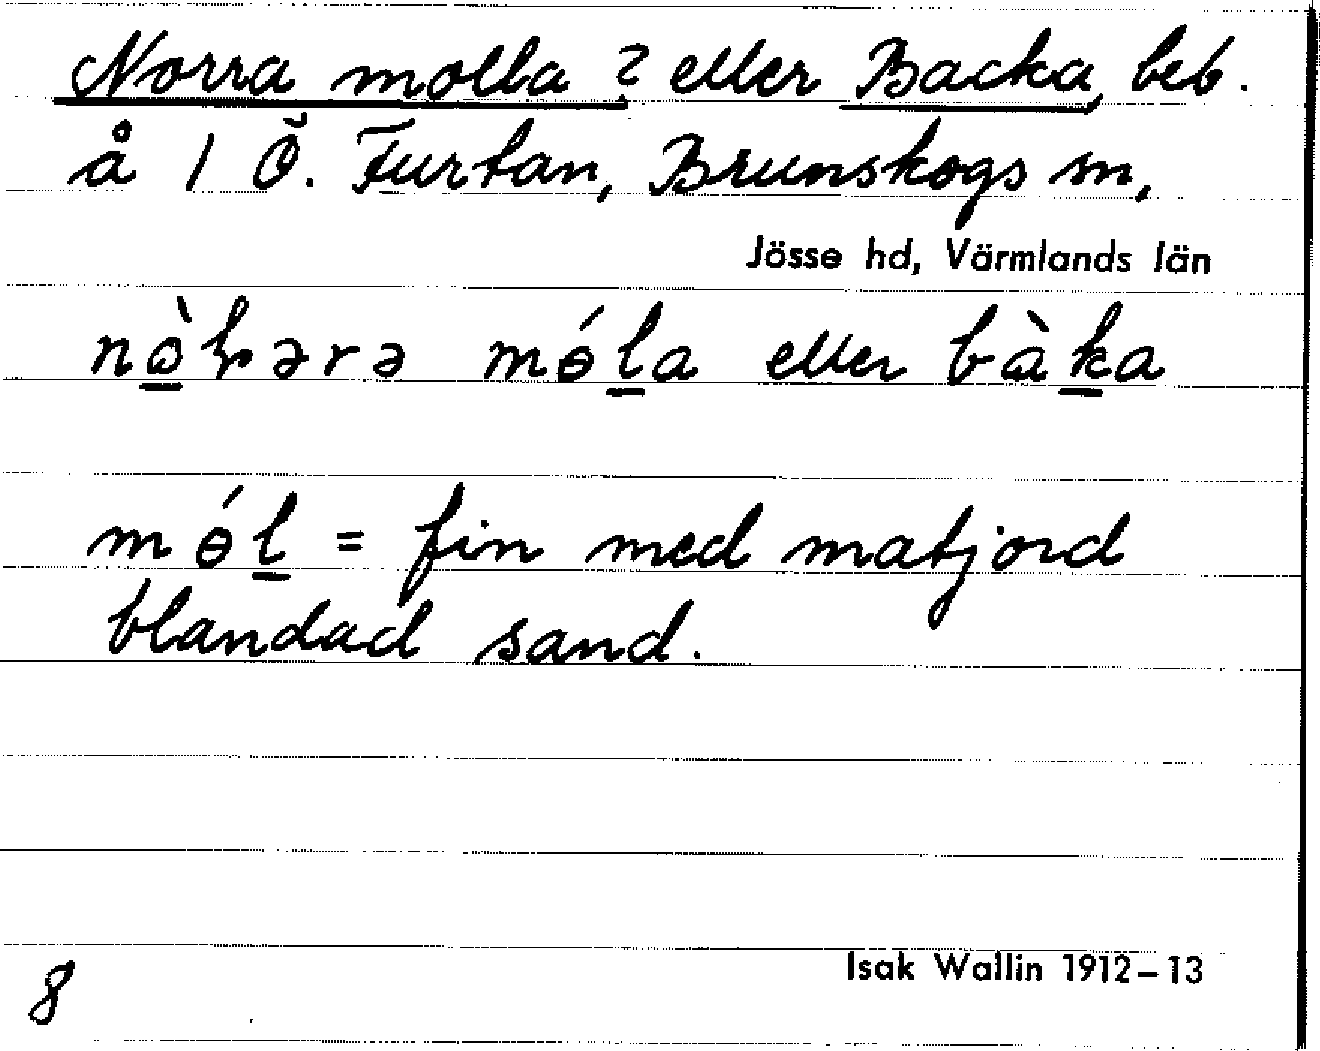 Norra molla ? eller Backa, beb.
å 1 Ö. Furtan, Brunskogs sn,
Jösse hd, Värmlands län
nɷ̀hərə mɵ́la eller bàka
mɵ́l = fin med matjord
blandad sand.
Isak Wallin 1912–13
8